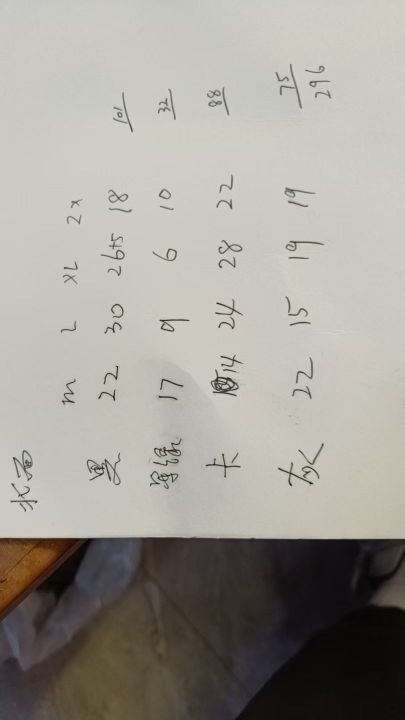 m L XL 2X
黑 22 30 26+5 18 101
军绿 17 9 6 10 32
卡 14 24 28 22 88
灰 22 15 19 19 75
296